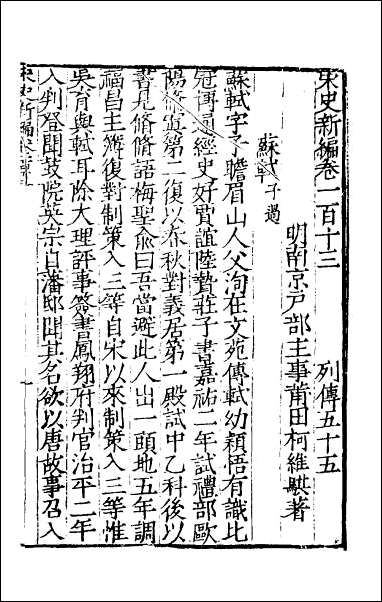 宋史新編卷一百十三　列傳五十五
明南京戶部主事莆田柯維騏著
蘇軾 子過
蘇軾字子瞻眉山人父洵在文苑傳軾幼穎悟有識比
冠博通經史好賈誼陸贄莊子書嘉祐二年試禮部歐
陽脩寘第二復以春秋對義居第一殿試中乙科後以
書見脩脩語梅聖俞曰吾當避此人出一頭地五年調
福昌主簿復對制策入三等自宋以來制策入三等惟
吳育與軾耳除大理評事簽書鳳翔府判官治平二年
入判登聞鼓院英宗自藩邸聞其名欲以唐故事召入
宋史新編卷